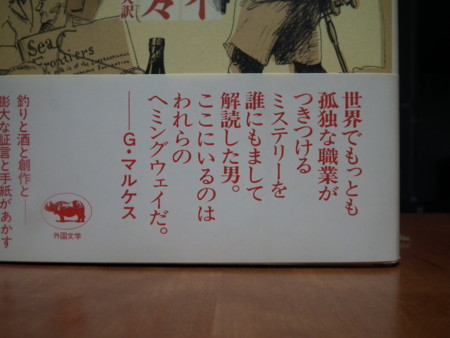 Sea
Frontiers
訳
々
世界でもっとも
孤独な職業が
つきつける
ミステリーを
誰にもまして
解読した男。
ここにいるのは
われらの
ヘミングウェイだ。
——G・マルケス
釣りと酒と創作と——
膨大な証言と手紙があかす
外国文学